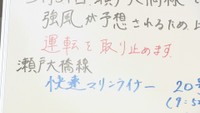 強風が予想されるため
運転を取り止めます。
瀬戸大橋線
快速マリンライナー 20号